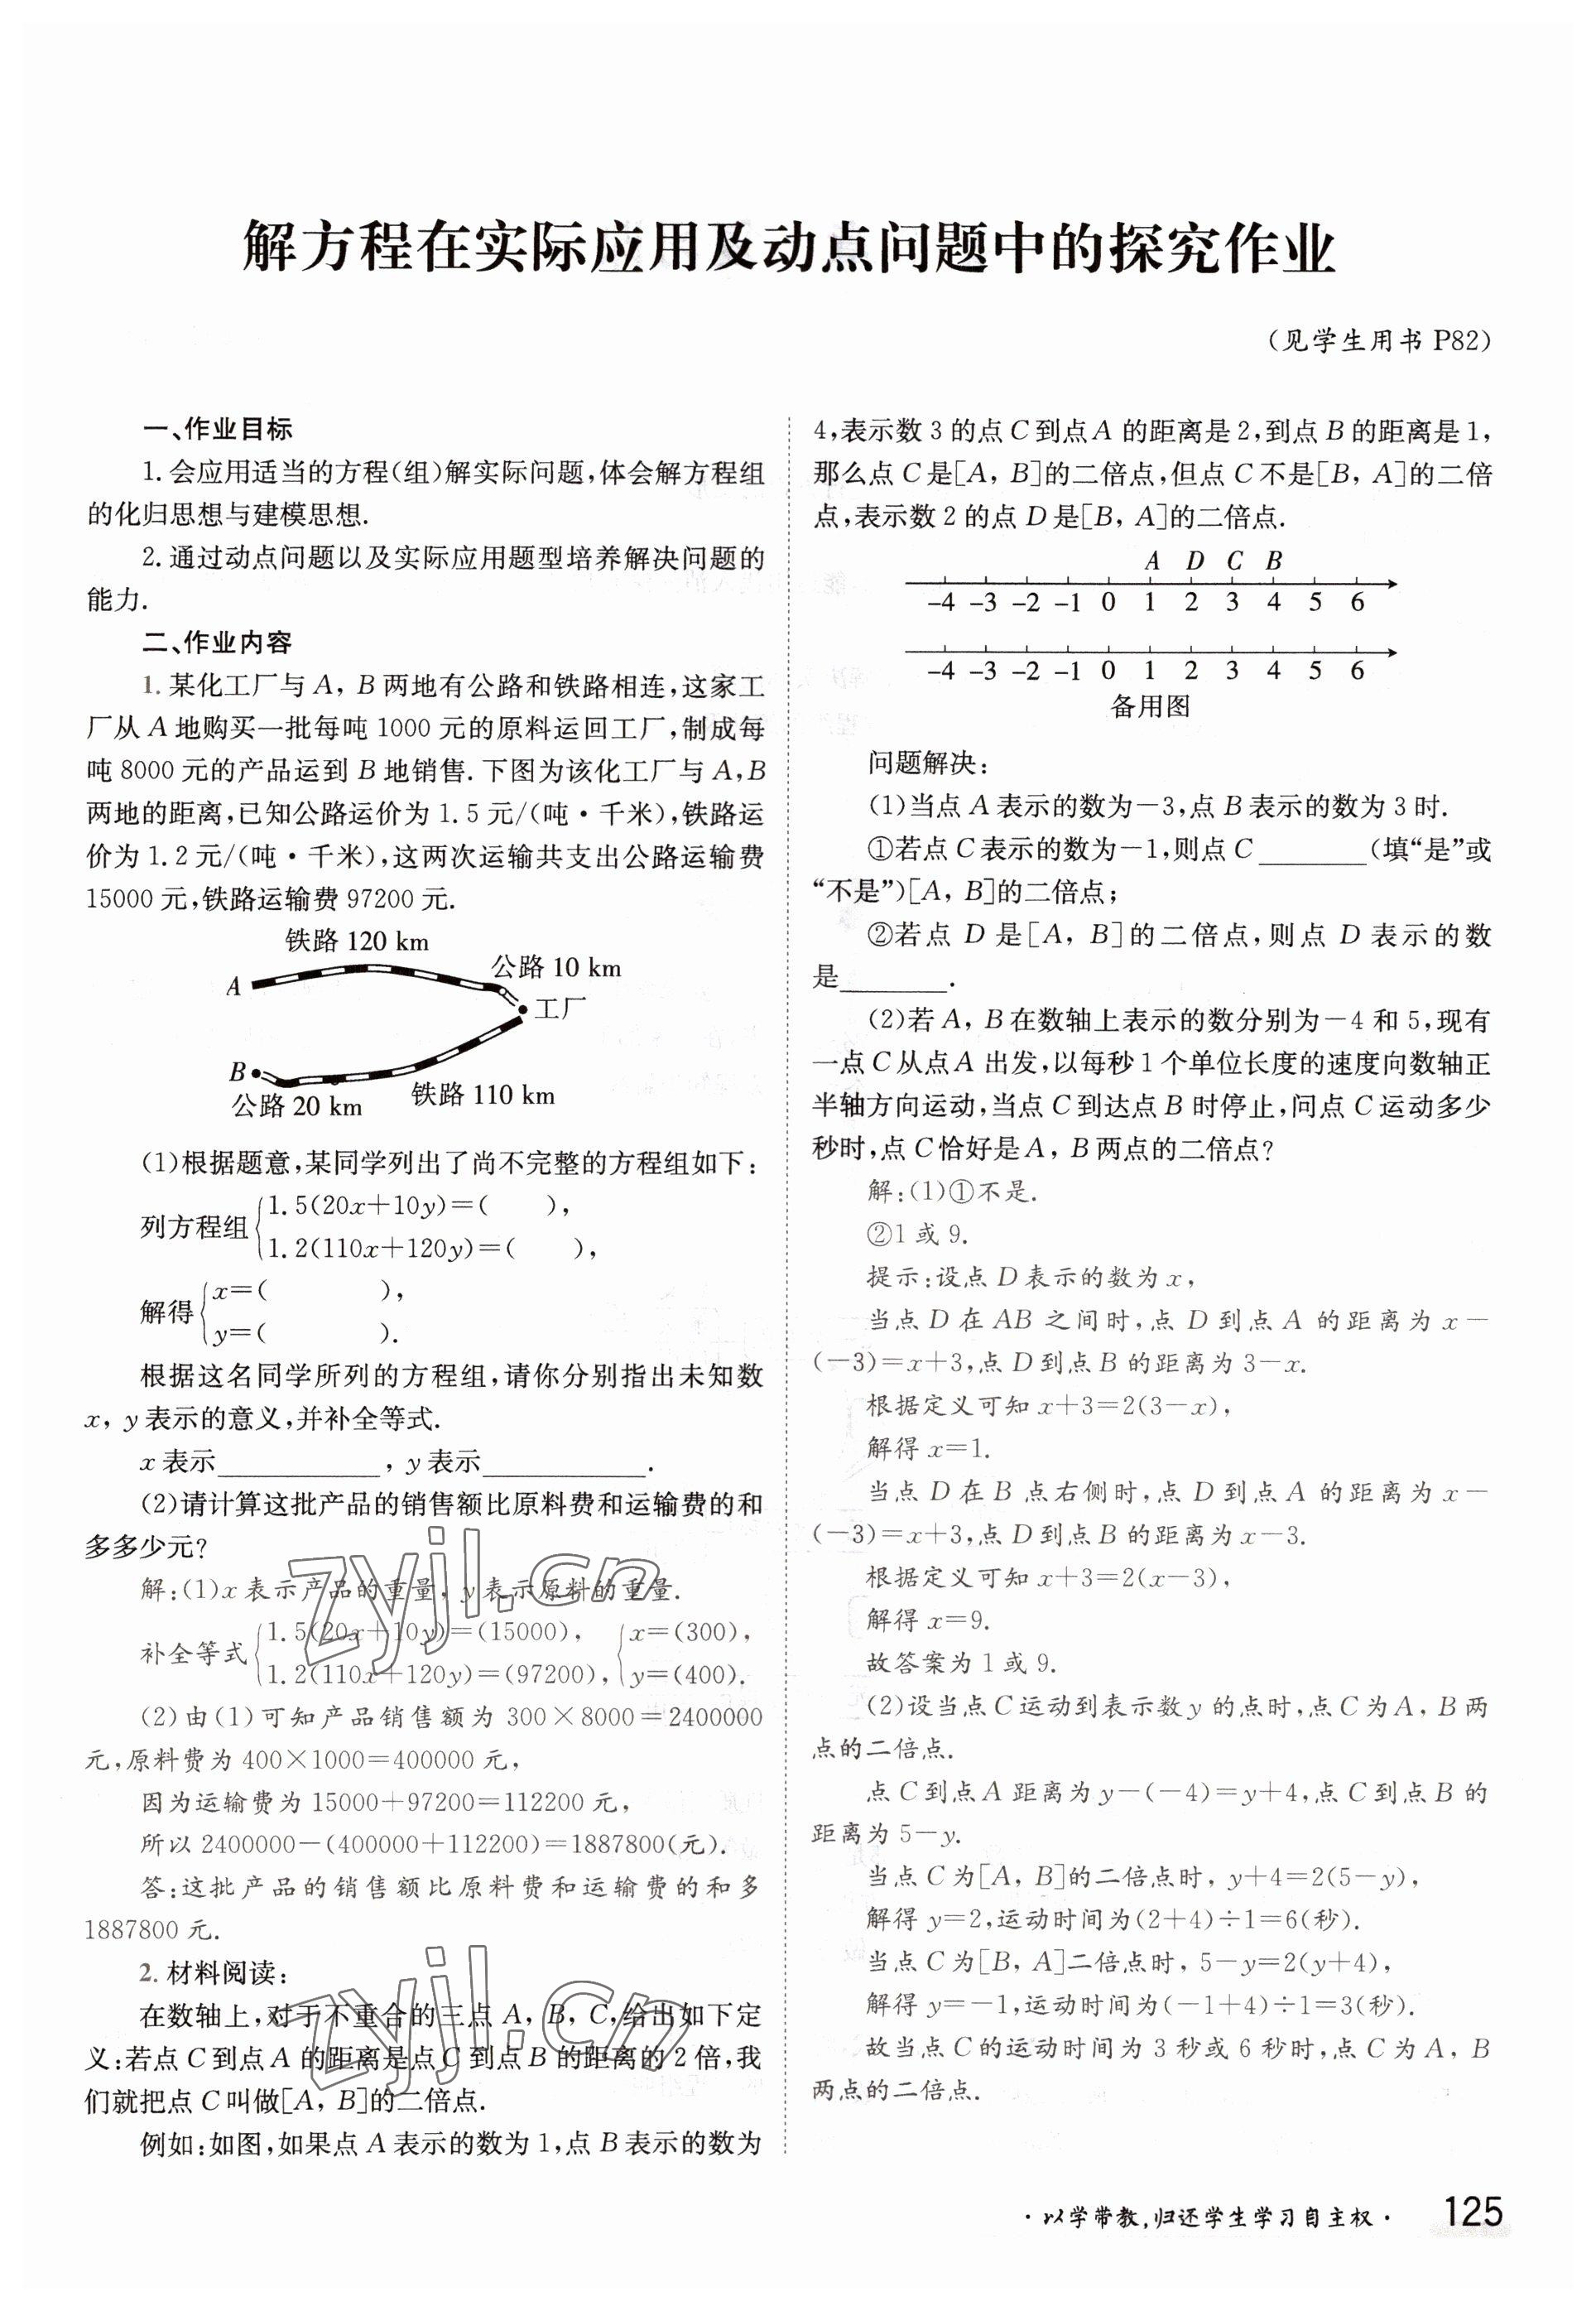 解方程在实际应用及动点问题中的探究作业
(见学生用书 P82)
一、作业目标
1. 会应用适当的方程(组)解实际问题,体会解方程组
的化归思想与建模思想.
2. 通过动点问题以及实际应用题型培养解决问题的
能力.
二、作业内容
1. 某化工厂与 A, B 两地有公路和铁路相连,这家工
厂从 A 地购买一批每吨 1000 元的原料运回工厂,制成每
吨 8000 元的产品运到 B 地销售. 下图为该化工厂与 A,B
两地的距离,已知公路运价为 1. 5 元/(吨·千米),铁路运
价为 1. 2 元/(吨·千米),这两次运输共支出公路运输费
15000 元,铁路运输费 97200 元.
铁路 120 km
公路 10 km
A
工厂
B
公路 20 km
铁路 110 km
(1)根据题意,某同学列出了尚不完整的方程组如下:
列方程组
1. 5(20x+10y)=(  ),
1. 2(110x+120y)=(  ),
解得
x=(  ),
y=(  ).
根据这名同学所列的方程组,请你分别指出未知数
x, y 表示的意义,并补全等式.
x 表示____________, y 表示____________.
(2)请计算这批产品的销售额比原料费和运输费的和
多多少元?
解:(1)x 表示产品的重量, y 表示原料的重量.
补全等式
1. 5(20x+10y)=(15000), x=(300),
1. 2(110x+120y)=(97200), y=(400).
(2)由(1)可知产品销售额为 300×8000=2400000
元,原料费为 400×1000=400000 元,
因为运输费为 15000+97200=112200 元,
所以 2400000-(400000+112200)=1887800(元).
答:这批产品的销售额比原料费和运输费的和多
1887800 元.
2. 材料阅读:
在数轴上,对于不重合的三点 A, B, C,给出如下定
义:若点 C 到点 A 的距离是点 C 到点 B 的距离的 2 倍,我
们就把点 C 叫做[A, B]的二倍点.
例如:如图,如果点 A 表示的数为 1,点 B 表示的数为
4,表示数 3 的点 C 到点 A 的距离是 2,到点 B 的距离是 1,
那么点 C 是[A, B]的二倍点,但点 C 不是[B, A]的二倍
点,表示数 2 的点 D 是[B, A]的二倍点.
A D C B
-4 -3 -2 -1 0 1 2 3 4 5 6
-4 -3 -2 -1 0 1 2 3 4 5 6
备用图
问题解决:
(1)当点 A 表示的数为-3,点 B 表示的数为 3 时.
①若点 C 表示的数为-1,则点 C ________(填“是”或
“不是”)[A, B]的二倍点;
②若点 D 是[A, B]的二倍点,则点 D 表示的数
是________.
(2)若 A, B 在数轴上表示的数分别为-4 和 5,现有
一点 C 从点 A 出发,以每秒 1 个单位长度的速度向数轴正
半轴方向运动,当点 C 到达点 B 时停止,问点 C 运动多少
秒时,点 C 恰好是 A, B 两点的二倍点?
解:(1)①不是.
②1 或 9.
提示:设点 D 表示的数为 x,
当点 D 在 AB 之间时,点 D 到点 A 的距离为 x-
(-3)=x+3,点 D 到点 B 的距离为 3-x.
根据定义可知 x+3=2(3-x),
解得 x=1.
当点 D 在 B 点右侧时,点 D 到点 A 的距离为 x-
(-3)=x+3,点 D 到点 B 的距离为 x-3.
根据定义可知 x+3=2(x-3),
解得 x=9.
故答案为 1 或 9.
(2)设当点 C 运动到表示数 y 的点时,点 C 为 A, B 两
点的二倍点.
点 C 到点 A 距离为 y-(-4)=y+4,点 C 到点 B 的
距离为 5-y.
当点 C 为[A, B]的二倍点时, y+4=2(5-y),
解得 y=2,运动时间为(2+4)÷1=6(秒).
当点 C 为[B, A]二倍点时, 5-y=2(y+4),
解得 y=-1,运动时间为(-1+4)÷1=3(秒).
故当点 C 的运动时间为 3 秒或 6 秒时,点 C 为 A, B
两点的二倍点.
zyjl.cn
zyjl.cn
·以学带教,归还学生学习自主权· 125